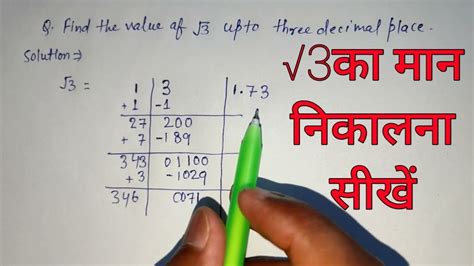 Q. Find the value af √3 upto three decimal place.
Solution ⇒
√3 = 1 3 1.73
+1 -1
27 200
+ 7 -189
343 01100
+3 -1029
346 0071
√3का मान
निकालना
सीखें